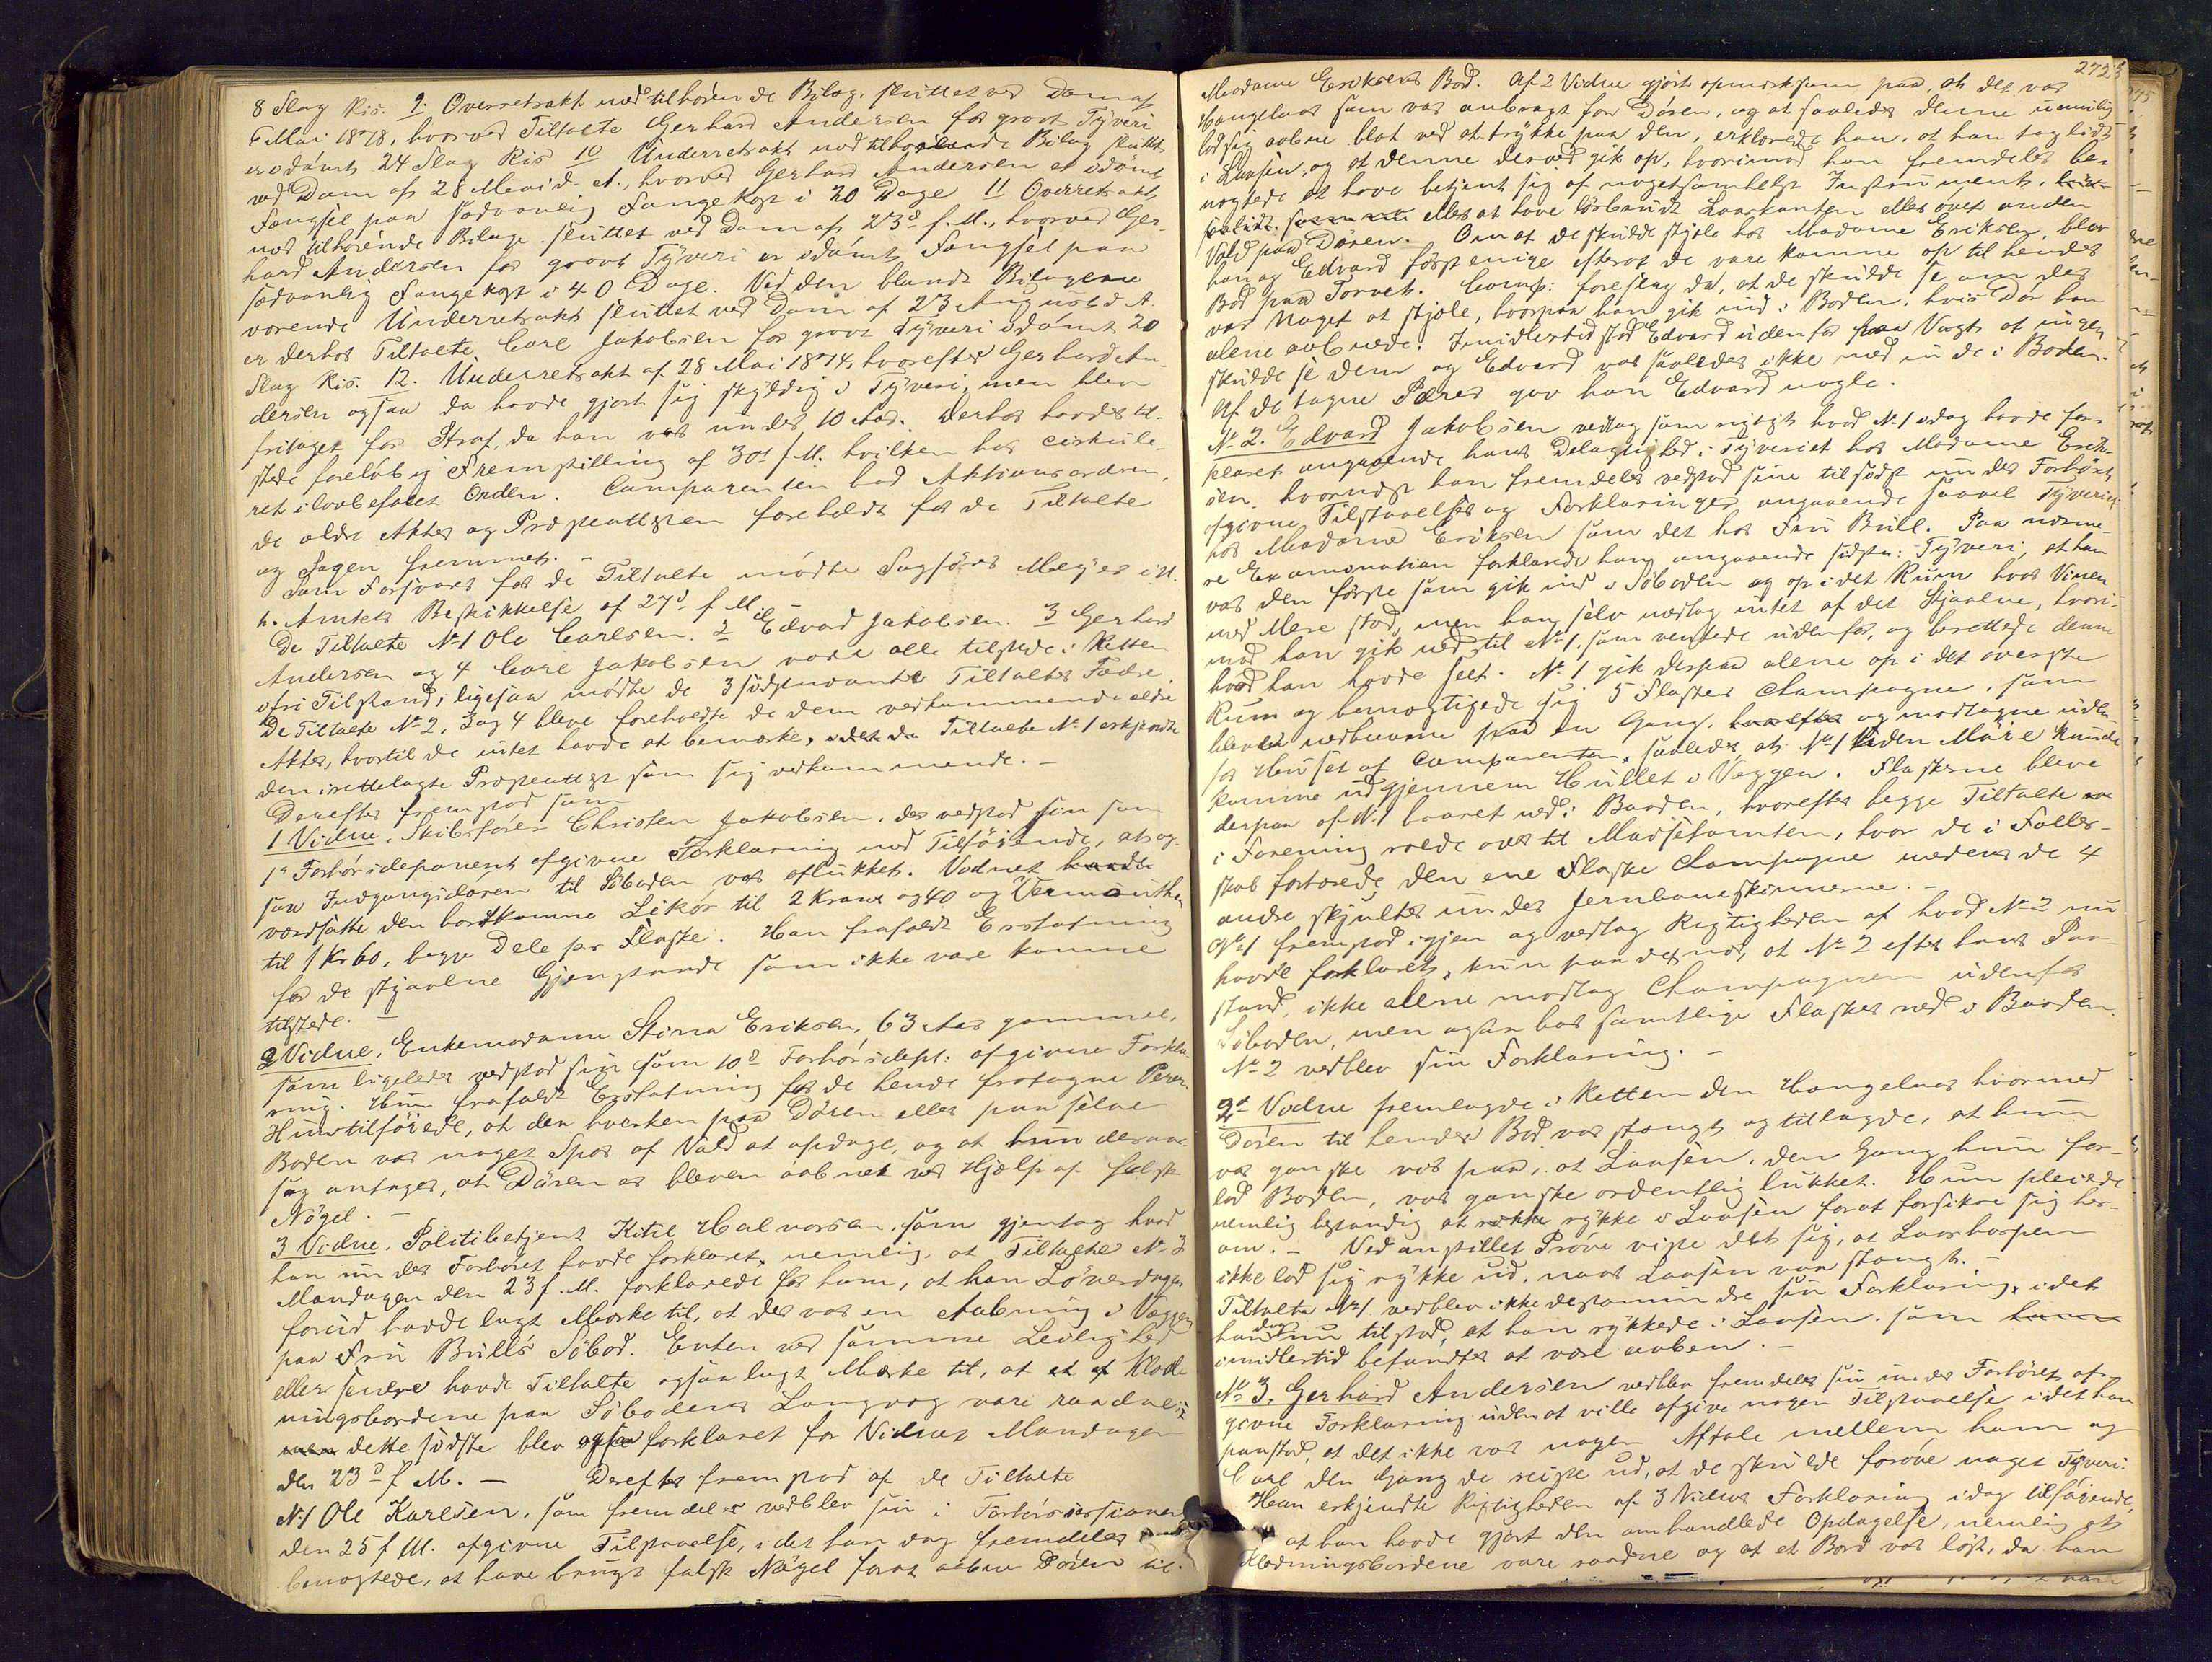 8 Slag Ris. 9. Overretsakt med tilhörende Bilag, sluttet ved Dom af
6 Mai 1878, hvorved Tiltalte Gerhard Andersen for grovt Tyveri
er idömt 24 Slag Ris 10 Underretsakt med tilhörende Bilag sluttet
ved Dom af 28 Mai d. A., hvorved Gerhard Andersen er idömt
Fængsel paa sædvanlig Fangekost i 20 Dage 11 Overretsakt
med tilhörende Bilage sluttet ved Dom af 23d f. M., hvorved Ger-
hard Andersen for grovt Tyveri er idömt Fængsel paa
sædvanlig Fangekost i 40 Dage. Ved den blandt Bilagene
værende Underretsakt sluttet ved Dom af 23 August d. A.
er derhos Tiltalte Carl Jakobsen for grovt Tyveri idömt 20
Slag Ris. 12. Underretsakt af 28 Mai 1874, hvorefter Gerhard An-
dersen ogsaa da havde gjort sig skyldig i Tyveri, men blev
fritaget for Straf, da han var under 10 Aar. Derhos havdes til-
stede foreløbig Fremstilling af 30d f. M. hvilken har cirkule-
ret i lovbefalet Orden. Comparenten bad Aktionsordren,
de ældre Akter og Præsteattesten foreholdt for de Tiltalte
og Sagen fremmet. -
Som Forsvarer for de Tiltalte mödte Sagförer Meyer i H.
t. Amtets Beskikkelse af 27d f M.
De Tiltalte No 1 Ole Carlsen. 2 Edvard Jakobsen. 3 Gerhard
Andersen og 4 Carl Jakobsen vare alle tilstede i Retten
i fri Tilstand, ligesaa mödte de 3 sidstnævnte Tiltaltes Fædre.
De Tiltalte No 2, 3 og 4 bleve foreholdte de dem vedkommende ældre
Akter, hvortil de intet havde at bemærke, Tiltalte No 1 erkjendte
den irettelagte Præsteattest som sig vedkommende. -
Derefter fremstod som
1 Vidne. Skibsförer Christen Jakobsen, der vedstod sin som
1e Forhörsdeponent afgivne Forklaring med Tilföiende, at og-
saa Indgangsdören til Söboden var aflukket. Vidnet havde
værdsatte den bortkomne Likör til 2 Kroner og 40 og Vermouthen
til 1 Kr 60, begge Dele pr Flaske. Han frafaldt Erstatning
for de stjaalne Gjenstande som ikke vare komne
tilstede. -
2 Vidne, Enkemadame Stina Eriksen, 63 Aar gammel,
som ligeledes vedstod sin som 10d Forhörsdept: afgivne Forkla-
ring. Hun frafaldt Erstatning for de hende fratagne Pærer.
Hun tilföiede, at der hverken paa Dören eller paa selve
Boden var noget Spor af Vold at opdage, og at hun desaar-
sag antager, at Dören er bleven aabnet ved Hjælp af falsk
Nögel. -
3 Vidne. Politibetjent Kitil Halvorsen, som gjentog hvad
han under Forhöret havde forklaret, nemlig, at Tiltalte No 3
Mandagen den 23 f. M. forklarede for ham, at han Löverdagen
forud havde lagt Mærke til, at der var en Aabning i Væggen
paa Fru Bülls Söbod. Enten ved samme Leilighed
eller senere havde Tiltalte ogsaa lagt Mærke til, at et af Klæd-
ningsbordene paa Söbodens Langvæg vare raadne;
men dette sidste blev ogsaa forklaret for Vidnet Mandagen
den 23d f M. - Derefter fremstod af de Tiltalte
No 1 Ole Karlsen, som fremdeles vedblev sin i Forhörssessionen
den 25 f M. afgivne Tilstaaelse, idet han dog fremdeles
benegtede, at have brugt falsk Nögel forat aabne Dören til
272
Madame Eriksens Bod. Af 2 Vidne gjort opmerksom paa, at det var
Hængelaas som var anbragt for Dören, og at saaledes denne umulig
lod sig aabne blot ved at trykke paa den, erklærede han, at han tog lidt
i Laasen, og at denne derved gik op, hvorimod han fremdeles be-
negtede at have betjent sig af nogetsomhelst Instrument,
eller at have lösbrudt Laaskanten eller övet anden
Vold paa Dören. Om at de skulde stjæle hos Madame Eriksen, blev
han og Edvard först enige efterat de vare komne op til hendes
Bod paa Torvet. Comp: foreslog da, at de skulde se om der
var Noget at stjæle, hvorpaa han gik ind i Boden, hvis Dör han
alene aabnede. Imidlertid stod Edvard udenfor paa Vagt at ingen
skulde se dem og Edvard var saaledes ikke med inde i Boden.
Af de tagne Pærer gav han Edvard nogle.
No 2. Edvard Jakobsen vedtog som rigtigt hvad No 1 idag havde for-
klaret angaaende hans Delagtighed i Tyveriet hos Madame Erik-
sen, hvornæst han fremdeles vedstod sine tilsidst under Forhöret
afgivne Tilstaaelser og Forklaringer angaaende saavel Tyveriet
hos Madame Eriksen som det hos Fru Büll. Paa nærme-
re Examination forklarede han angaaende sidstn: Tyveri, at han
var den förste som gik ind i Söboden og op i det Rum hvor Vinen
med Mere stod, men han selv medtog intet af det Stjaalne, hvori-
mod han gik ned til No 1, som ventede udenfor, og berettede denne
hvad han havde seet. No 1 gik derpaa alene op i det överste
Rum og bemægtigede sig 5 Flasker Champagne, som
bleve nedbaarne paa en Gang, hvorefter og modtagne uden-
for Huset af Comparenten, saaledes at No 1 uden Möie kunde
komme ud gjennem Hullet i Væggen. Flaskerne bleve
derpaa af No 1 baaret ned i Baaden, hvorefter begge Tiltalte
i Forening roede over til Madsetomten, hvor de i Fælles-
skab fortærede den ene Flaske Champagne medens de 4
andre skjultes under Jernbaneskinnerne. -
No 1 fremstod igjen og vedtog Rigtigheden af hvad No 2 nu
havde forklaret, kun paastod, at No 2 efter hans Paa-
stand, ikke alene modtog Champagnen udenfor
Söboden, men ogsaa bar samtlige Flasker ned i Baaden.
No 2 vedblev sin Forklaring. -
2d Vidne fremlagde i Retten den Hængelaas hvormed
Dören til hendes Bod var stængt og tillagde, at hun
var ganske vis paa, at Laasen, den Gang hun for-
lod Boden, var ganske ordentlig lukket. Hun pleiede
nemlig bestandig at rykke i Laasen forat forsikre sig her-
om. - Ved anstillet Pröve viste det sig, at Laashaspen
ikke lod sig rykke ud, naar Laasen var stængt. -
Tiltalte No 1 vedblev ikke destomindre sin Forklaring, idet
han dog nu tilstod, at han rykkede i Laasen, som
imidlertid befandtes at være aaben. -
No 3. Gerhard Andersen vedblev fremdeles sin under Forhöret af-
givne Forklaring uden at ville afgive nogen Tilstaaelse idet han
paastod, at det ikke var nogen Aftale mellem ham og
Carl den Gang de reiste ud, at de skulde foröve noget Tyveri.
Han erkjendte Rigtigheden af 3 Vidnes Forklaring idag tilföiende,
at han havde gjort den omhandlede Opdagelse, nemlig at
Klædningsbordene vare raadne og at et Bord var löst, da han